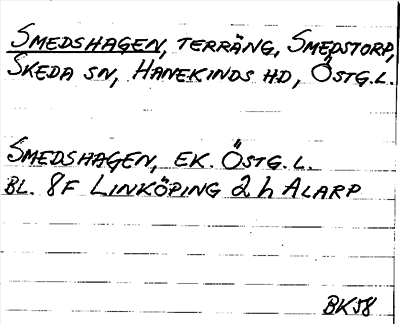 SMEDSHAGEN, TERRÄNG, SMEDSTORP,
SKEDA SN, HANEKINDS HD, ÖSTG.L.
SMEDSHAGEN, EK. ÖSTG.L.
BL. 8F LINKÖPING 2 h ALARP
BK58